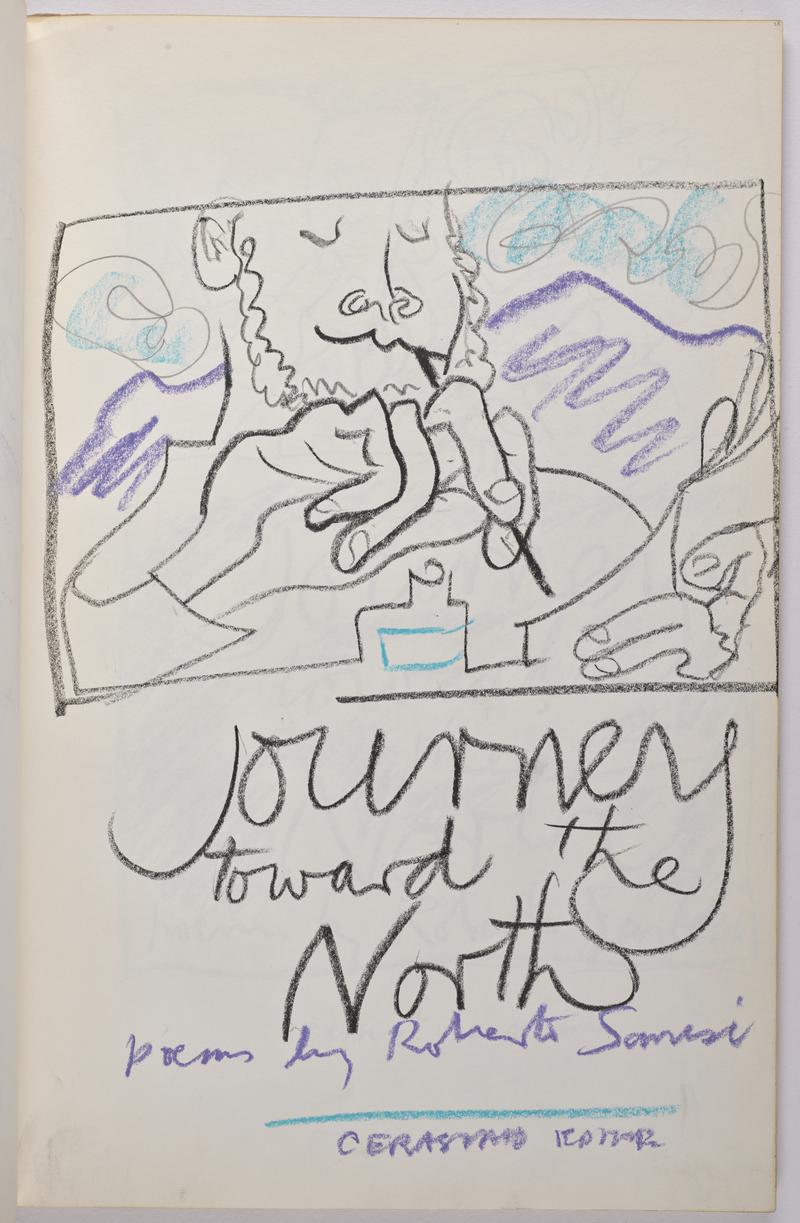 Journey
toward the
North
poems by Roberto Sanesi